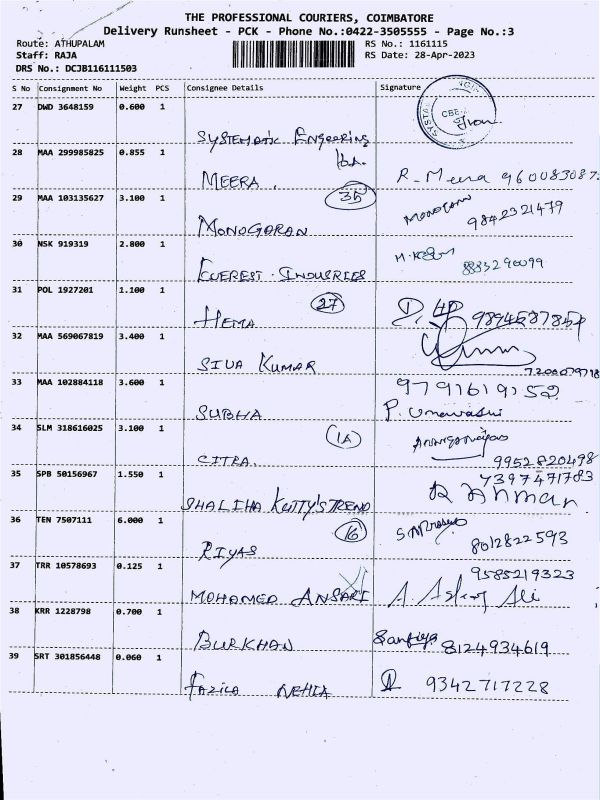 THE PROFESSIONAL COURIERS, COIMBATORE
Delivery Runsheet - PCK - Phone No.:0422-3505555 - Page No.:3
Route: ATHUPALAM RS No.: 1161115
Staff: RAJA RS Date: 28-Apr-2023
DRS No.: DCJB116111503
S No Consignment No Weight PCS Consignee Details Signature
27 DWD 3648159 0.600 1
SYSTEMATIC Engeering
28 MAA 299985825 0.855 1
MEERA. R. Meera 960083087
29 MAA 103135627 3.100 1 35
MONOGARAN 9842321479
30 NSK 919319 2.800 1
EVEREST INDUSRIES 8883290099
31 POL 1927201 1.100 1 27
HEMA 9894587854
32 MAA 569067819 3.400 1
SIVA KUMAR
33 MAA 102884118 3.600 1 9791619152
SUBHA P. Umawashi
34 SLM 318616025 3.100 1 1A
CITRA. 9952820498
35 SPB 50156967 1.550 1 7397471783
SHALIHA KUTTY'S TREND
36 TEN 7507111 6.000 1 16
RIYAS 8012822593
37 TRR 10578693 0.125 1 9585219323
MOHAMED ANSARI A. Asker Ali
38 KRR 1228798 0.700 1
BURKHAN 8124934619
39 SRT 301856448 0.060 1
FAZILA NEHLA 9342717228